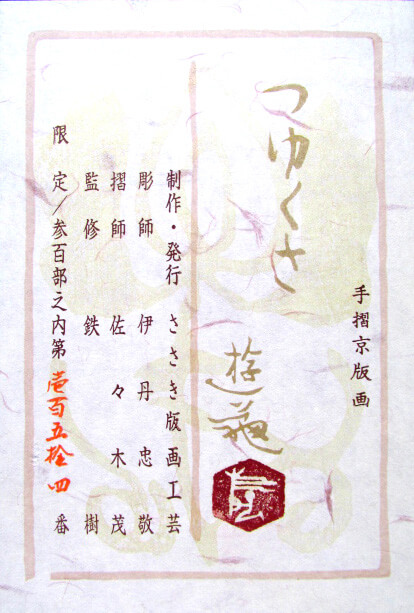 手摺京版画
つゆくさ
遊
制作・発行 ささき版画工芸
彫師 伊丹忠敬
摺師 佐々木茂
監修 鉄樹
限定/参百部之内第壱百五拾四番